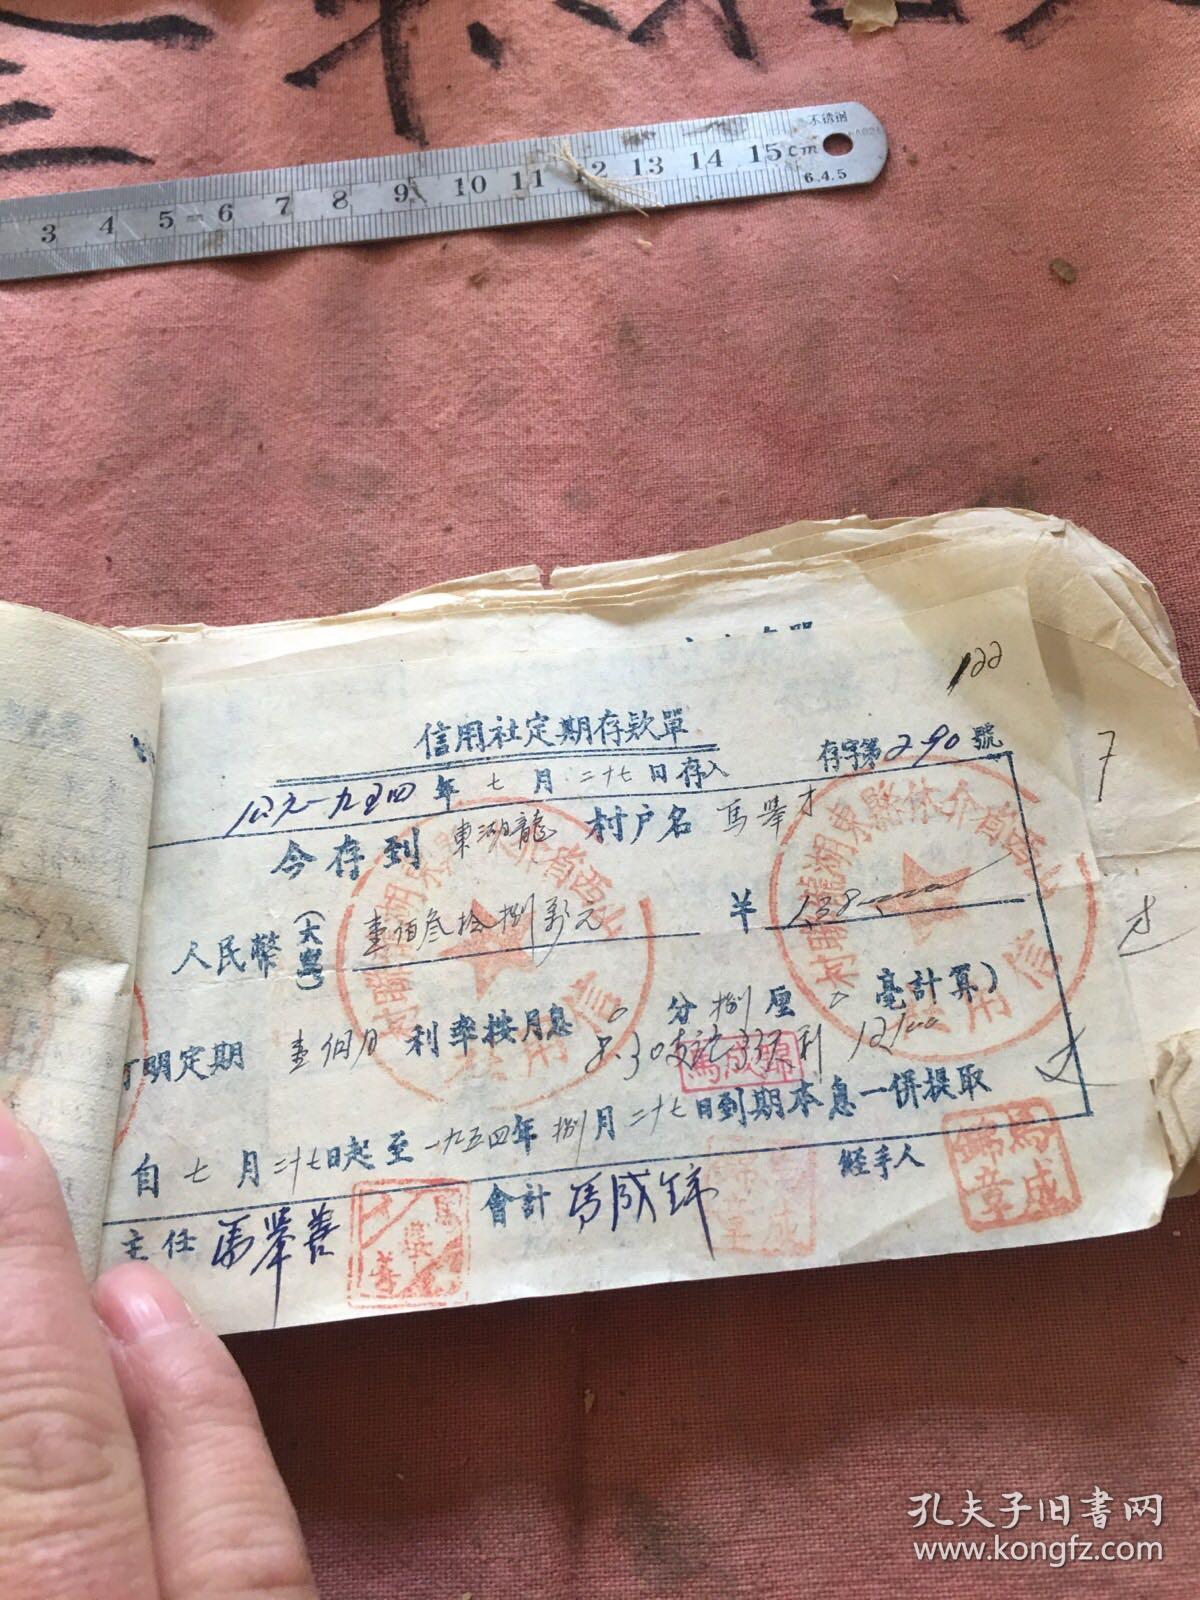 不锈钢
3 4 5 6 7 8 9 10 11 12 13 14 15 cm
6.4.5
122
信用社定期存欵單
公元一九五四年七月二十七日存入 存字第290號
今存到 東湖龍 村户名 馬舉才
人民幣(大寫) 壹佰叁拾捌萬元 ¥ 138
訂明定期 壹個月 利率按月息 0 分 捌 厘 0 毫計算)
8.30支訖33天利 12100
馬成錦
自七月二十七日起至一九五四年捌月二十七日到期本息一併提取
主任 馬舉善 會計 馬成錦 經手人
馬成錦章
山西省介休縣東湖龍村
信用
孔夫子旧书网
www.kongfz.com